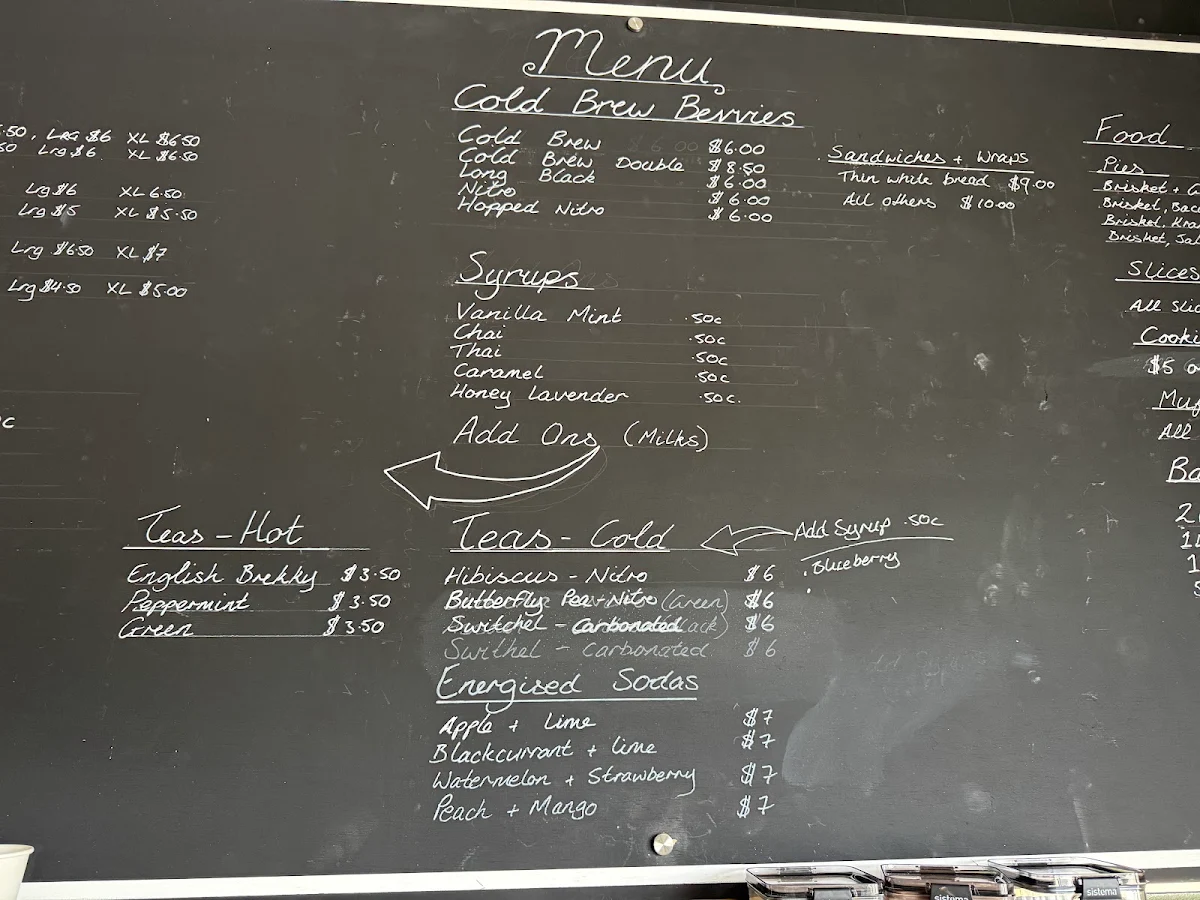 Menu
Cold Brew Bevvies
Cold Brew $6.00
Cold Brew Double $8.50
Long Black $6.00
Nitro $6.00
Hopped Nitro $6.00
Syrups
Vanilla Mint .50c
Chai .50c
Thai .50c
Caramel .50c
Honey Lavender .50c.
Add Ons (Milks)
.50, Lrg $6 XL $6.50
50 Lrg $6. XL $6.50
Lrg $6 XL 6.50
Lrg $5 XL $5.50
Lrg $6.50 XL $7
Lrg $4.50 XL $5.00
c
Teas - Hot
English Brekky $3.50
Peppermint $3.50
Green $3.50
Teas - Cold
Add Syrup .50c
. Blueberry
Hibiscus - Nitro $6
Butterfly Pea - Nitro (Green) $6
Switchel - Carbonated $6
Swithel - Carbonated $6
Energised Sodas
Apple + Lime $7
Blackcurrant + Lime $7
Watermelon + Strawberry $7
Peach + Mango $7
. Sandwiches + Wraps
Thin white bread $9.00
All others $10.00
Food
Pies
Brisket +
Brisket, Bac
Brisket,
Brisket,
Slices
All Slic
Cooki
$5
Muf
All
Ba
2
1
sistema
sistema